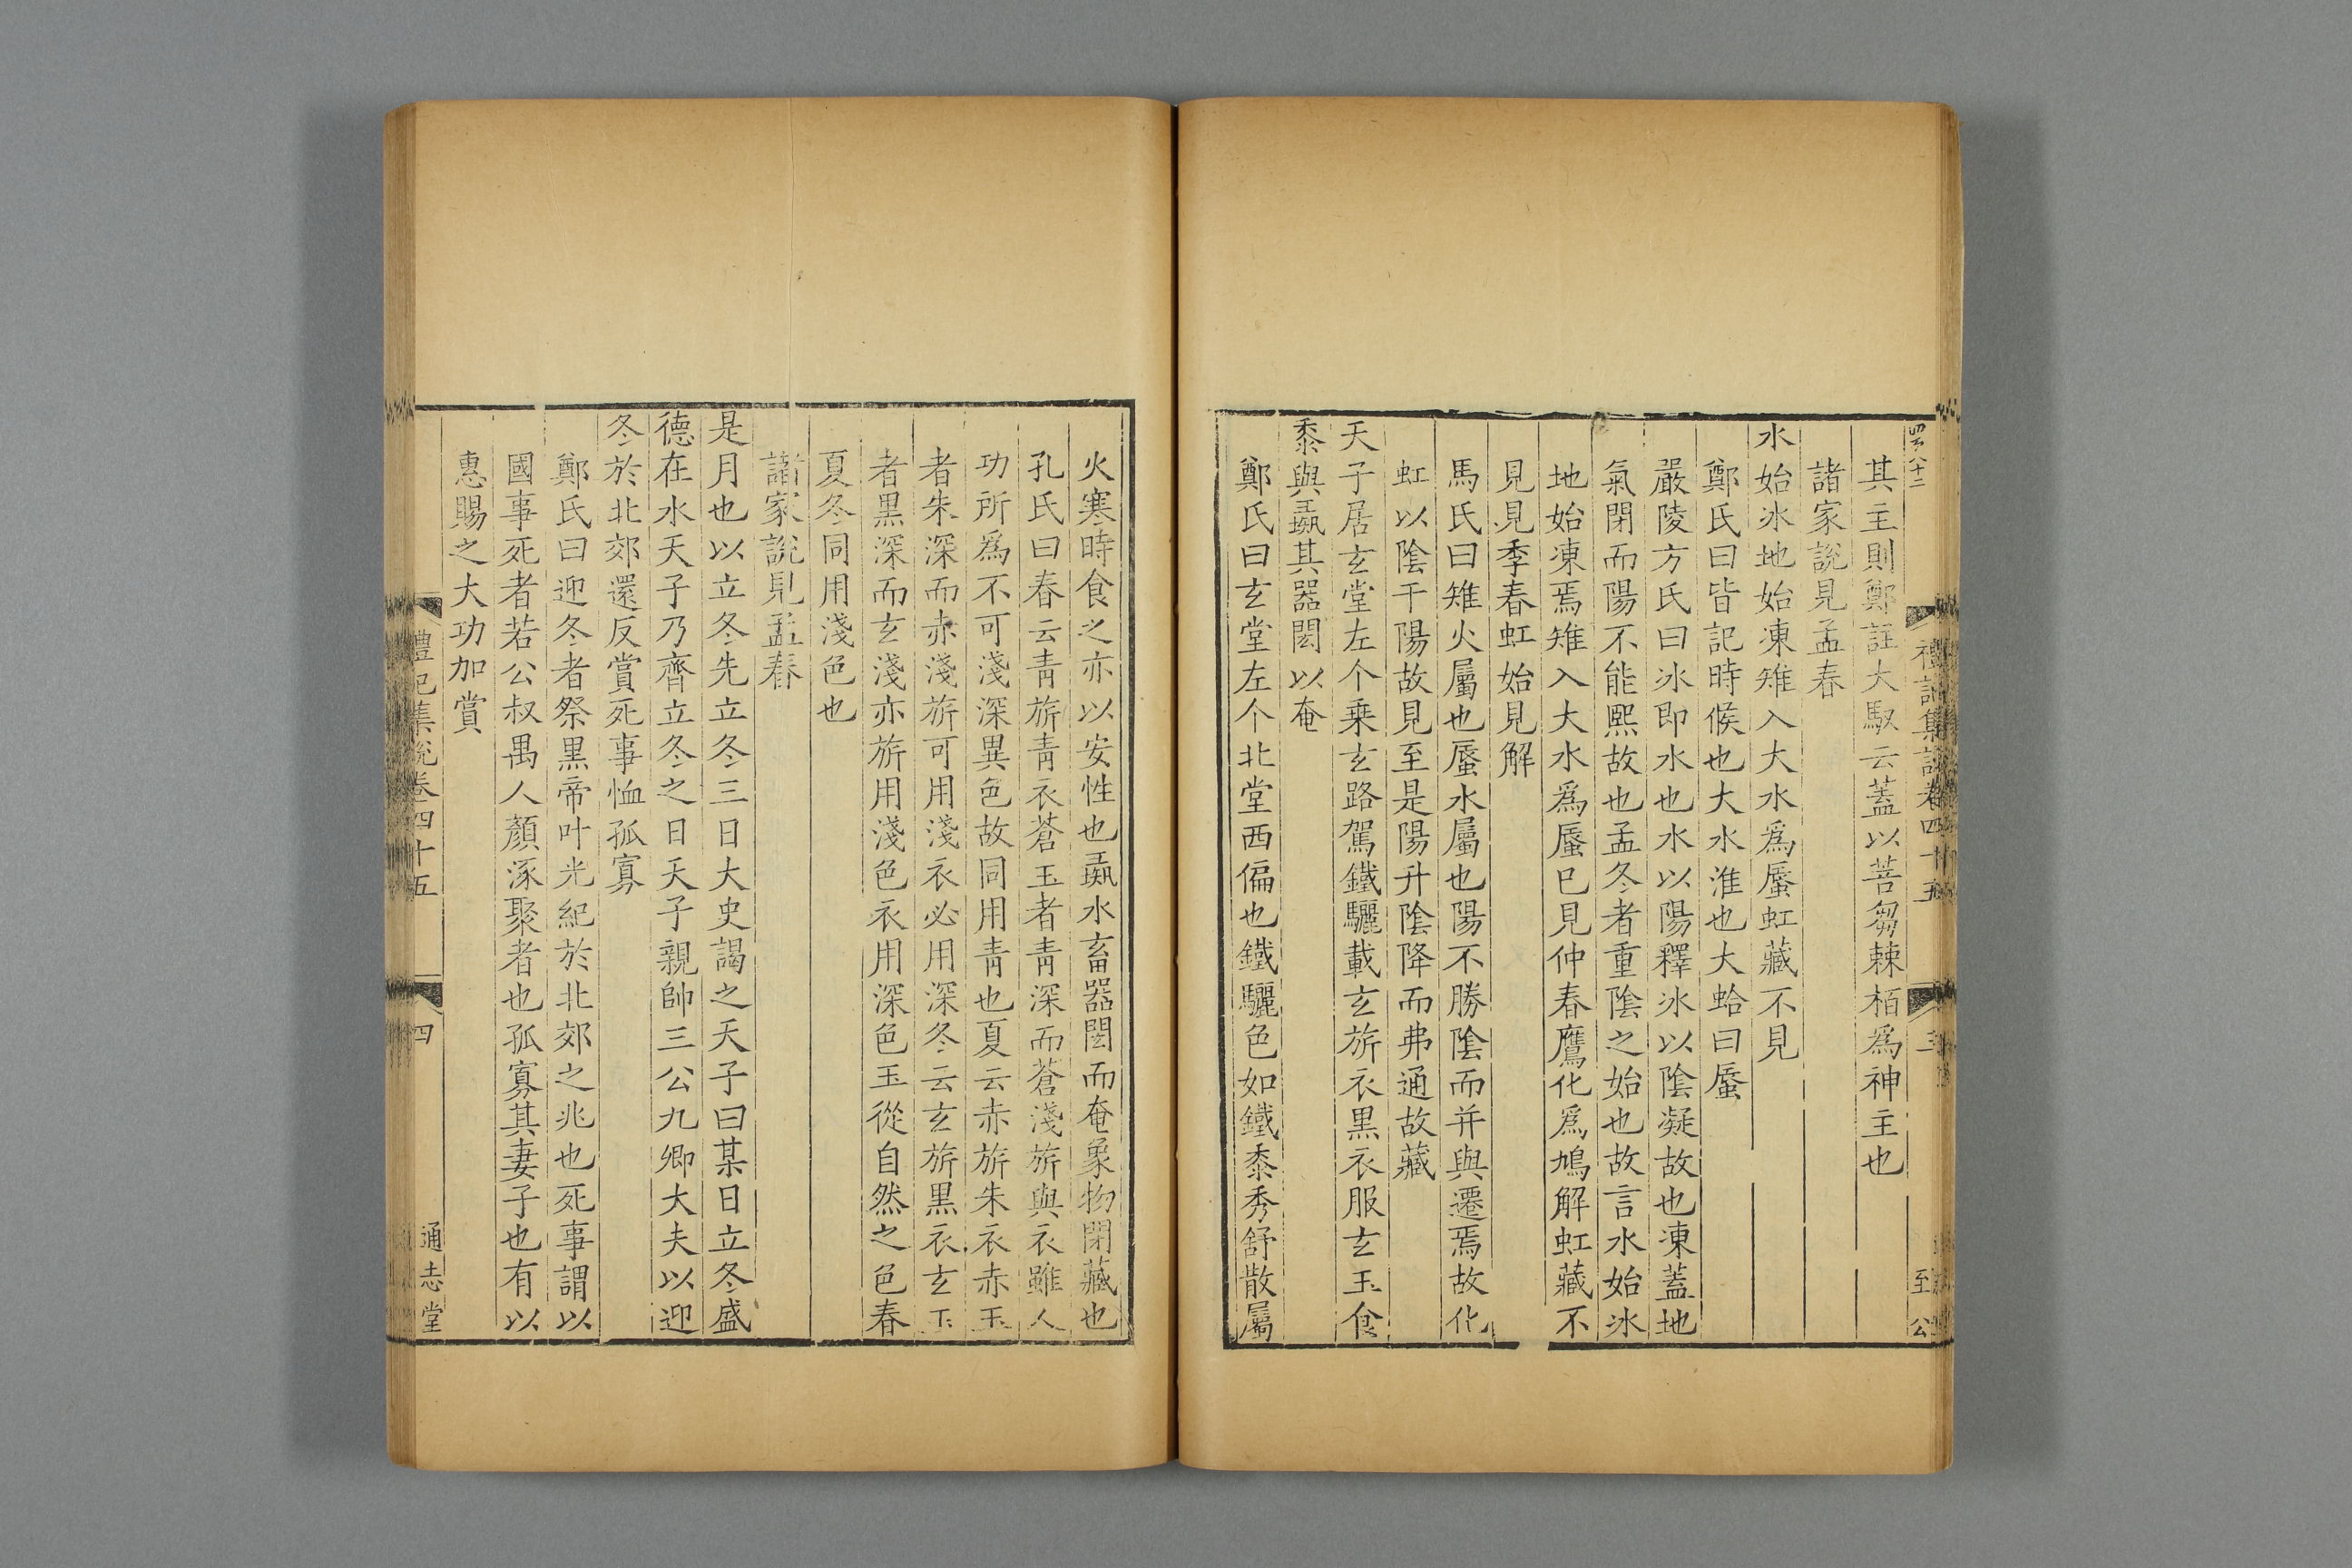 其主則鄭註大馭云蓋以菩芻棘栢爲神主也
諸家說見孟春
水始冰地始凍雉入大水爲蜃虹藏不見
鄭氏曰皆記時候也大水淮也大蛤曰蜃
嚴陵方氏曰冰即水也水以陽釋冰以陰凝故也凍蓋地
氣閉而陽不能熙故也孟冬者重陰之始也故言水始冰
地始凍焉雉入大水爲蜃巳見仲春鷹化爲鳩解虹藏不
見見季春虹始見解
馬氏曰雉火屬也蜃水屬也陽不勝陰而并與遷焉故化
虹以陰干陽故見至是陽升陰降而弗通故藏
天子居玄堂左个乗玄路駕鐵驪載玄旂衣黒衣服玄玉食
黍與彘其器閎以奄
鄭氏曰玄堂左个北堂西偏也鐵驪色如鐵黍秀舒散屬
火寒時食之亦以安性也彘水畜器閎而奄象物閉藏也
孔氏曰春云青旂青衣蒼玉者青深而蒼淺旂與衣雖人
功所爲不可淺深異色故同用青也夏云赤旂朱衣赤玉
者朱深而赤淺旂可用淺衣必用深冬云玄旂黒衣玄玉
者黒深而玄淺亦旂用淺色衣用深色玉從自然之色春
夏冬同用淺色也
諸家說見孟春
是月也以立冬先立冬三日大史謁之天子曰某日立冬盛
德在水天子乃齊立冬之日天子親帥三公九卿大夫以迎
冬於北郊還反賞死事恤孤寡
鄭氏曰迎冬者祭黒帝叶光紀於北郊之兆也死事謂以
國事死者若公叔禺人顏涿聚者也孤寡其妻子也有以
惠賜之大功加賞
禮記集說卷四十五
四
通志堂